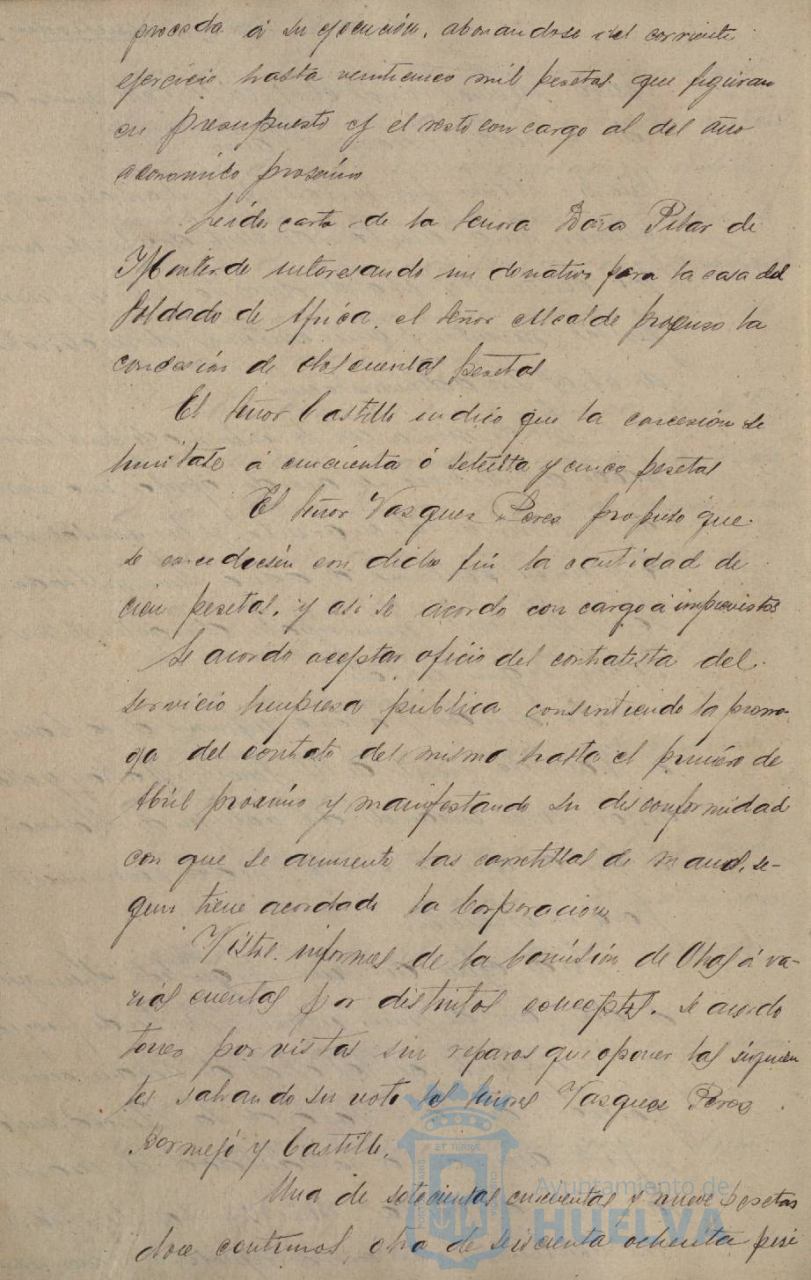 proceda á su ejecución, abonandose del corriente
ejercicio hasta veinticinco mil pesetas que figuran
en presupuesto y el resto con cargo al del año
economico proximo
Leida carta de la Señora Doña Pilar de
Monterde interesando un donativo para la casa del
Soldado de Africa, el Señor Alcalde propuso la
concesión de doscientas pesetas
El Señor Castillo indico que la concesión se
limitase á cincuenta ó setenta y cinco pesetas
El Señor Vasquez Perez propuso que
se concediesen con dicho fin la cantidad de
cien pesetas, y asi se acordo con cargo á imprevistos
Se acordo aceptar oficio del contratista del
servicio limpieza pública consintiendo la prorro-
ga del contrato del mismo hasta el primero de
Abril proximo y manifestando su disconformidad
con que se aumente las carretillas de mano, se-
gun tiene acordado la Corporacion
Vistos informes de la Comisión de Obras á va-
rias cuentas por distintos conceptos, se acordo
tener por vistas sin reparos que oponer las siguien
tes salvando su voto los Señores Vasquez Perez
Bormejo y Castillo.
Una de setecientas cincuenta y nueve pesetas
doce centimos, otra de seiscienta ochenta pese
Ayuntamiento de
HUELVA